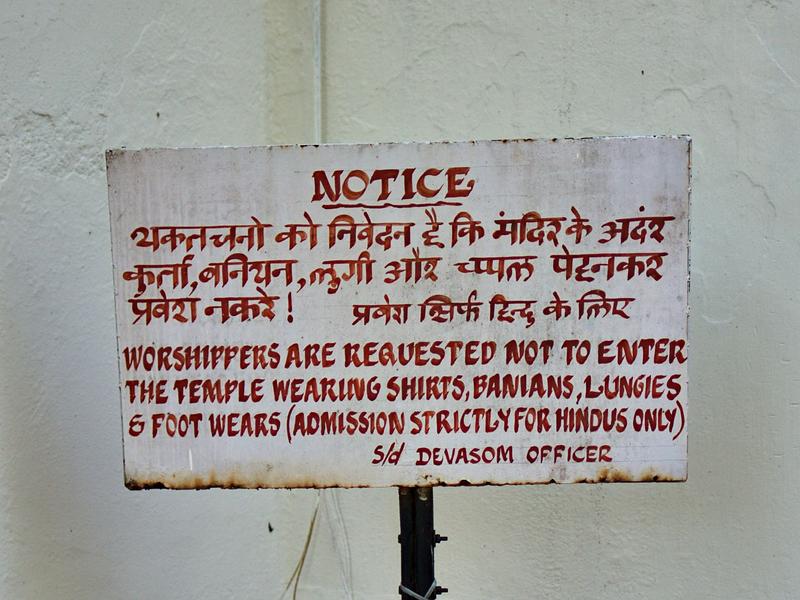 NOTICE
थकतचनो को निवेदन है कि मंदिर के अदंर
कुर्ता,बनियन,लुगी और च्प्पल पेहनकर
प्रवेश नकरे! प्रवेश सिर्फ हिन्दु के लिए
WORSHIPPERS ARE REQUESTED NOT TO ENTER
THE TEMPLE WEARING SHIRTS, BANIANS, LUNGIES
& FOOT WEARS (ADMISSION STRICTLY FOR HINDUS ONLY)
S/d DEVASOM OFFICER